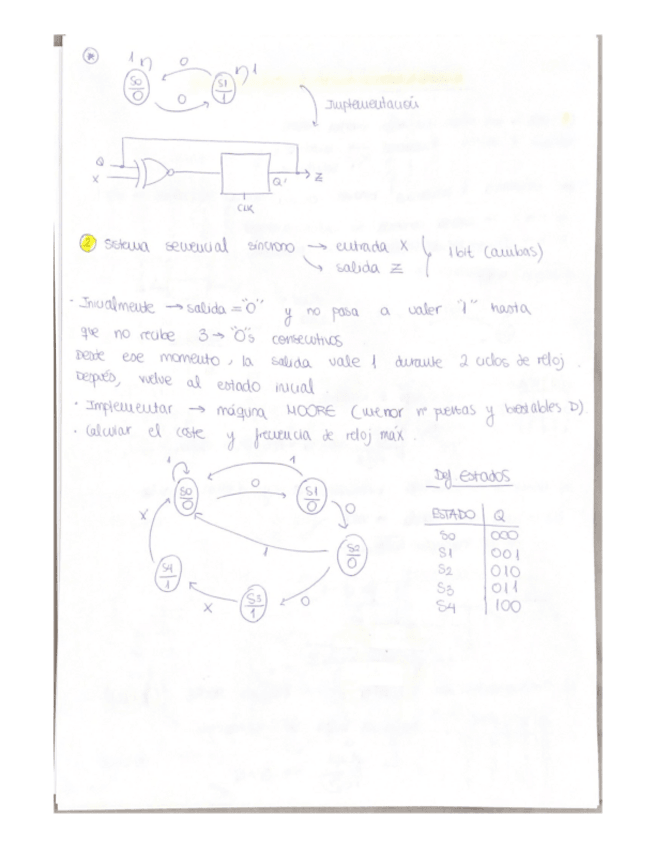 *
1 0 1
S0 S1
0 1
0
Implementación
Q
X Q' Z
CLK
2 Sistema secuencial síncrono → entrada X 1 bit (ambas)
→ salida Z
· Inicialmente → salida = "0" y no pasa a valer "1" hasta
que no recibe 3 → "0's" consecutivos
Desde ese momento, la salida vale 1 durante 2 ciclos de reloj.
Después, vuelve al estado inicial.
· Implementar → máquina MOORE (menor nº puertas y biestables D)
· Calcular el coste y frecuencia de reloj máx.
1 1
S0 0 S1
0 0
0
X 1 S2
0
S4
1
X S3 0
1
Def. Estados
ESTADO Q
S0 000
S1 001
S2 010
S3 011
S4 100